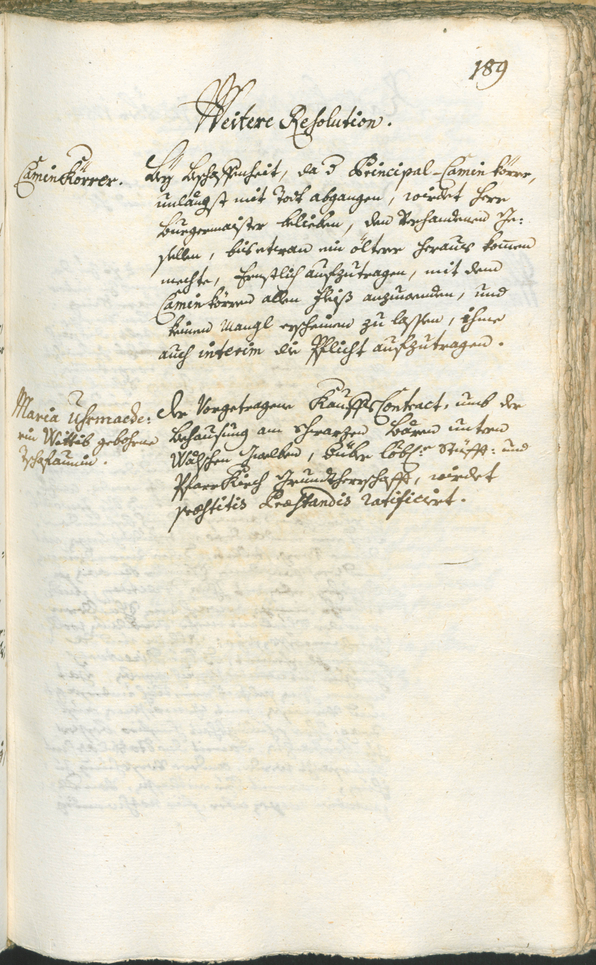 189
Weitere Resolution.
Caminkörrer.
Bey Beschaffenheit, da der Principal-Caminkörrer,
unlängst mit Todt abgangen, würdet Herr
Burgermaister belieben, den Verhandenen Ge-
sellen, bis etwan ein öltere heraus kommen
mechte, Ernstlich aufzutragen, mit dem
Caminkörren allen Fleiß anzuwenden, und
keinen Mangl erscheinen zu lassen, ihme
auch interim die Pflicht aufzutragen.
Maria
ein Wittib gebohrne
Der Vorgetragene KauffsContract, umb die
Behausung am schwarzen Bären untern
Wälschen Gwelben, Löbl: Stüfft- und
PfarrKirch Grundtherrschafft, würdet
præstitis Præstandis ratificiert.